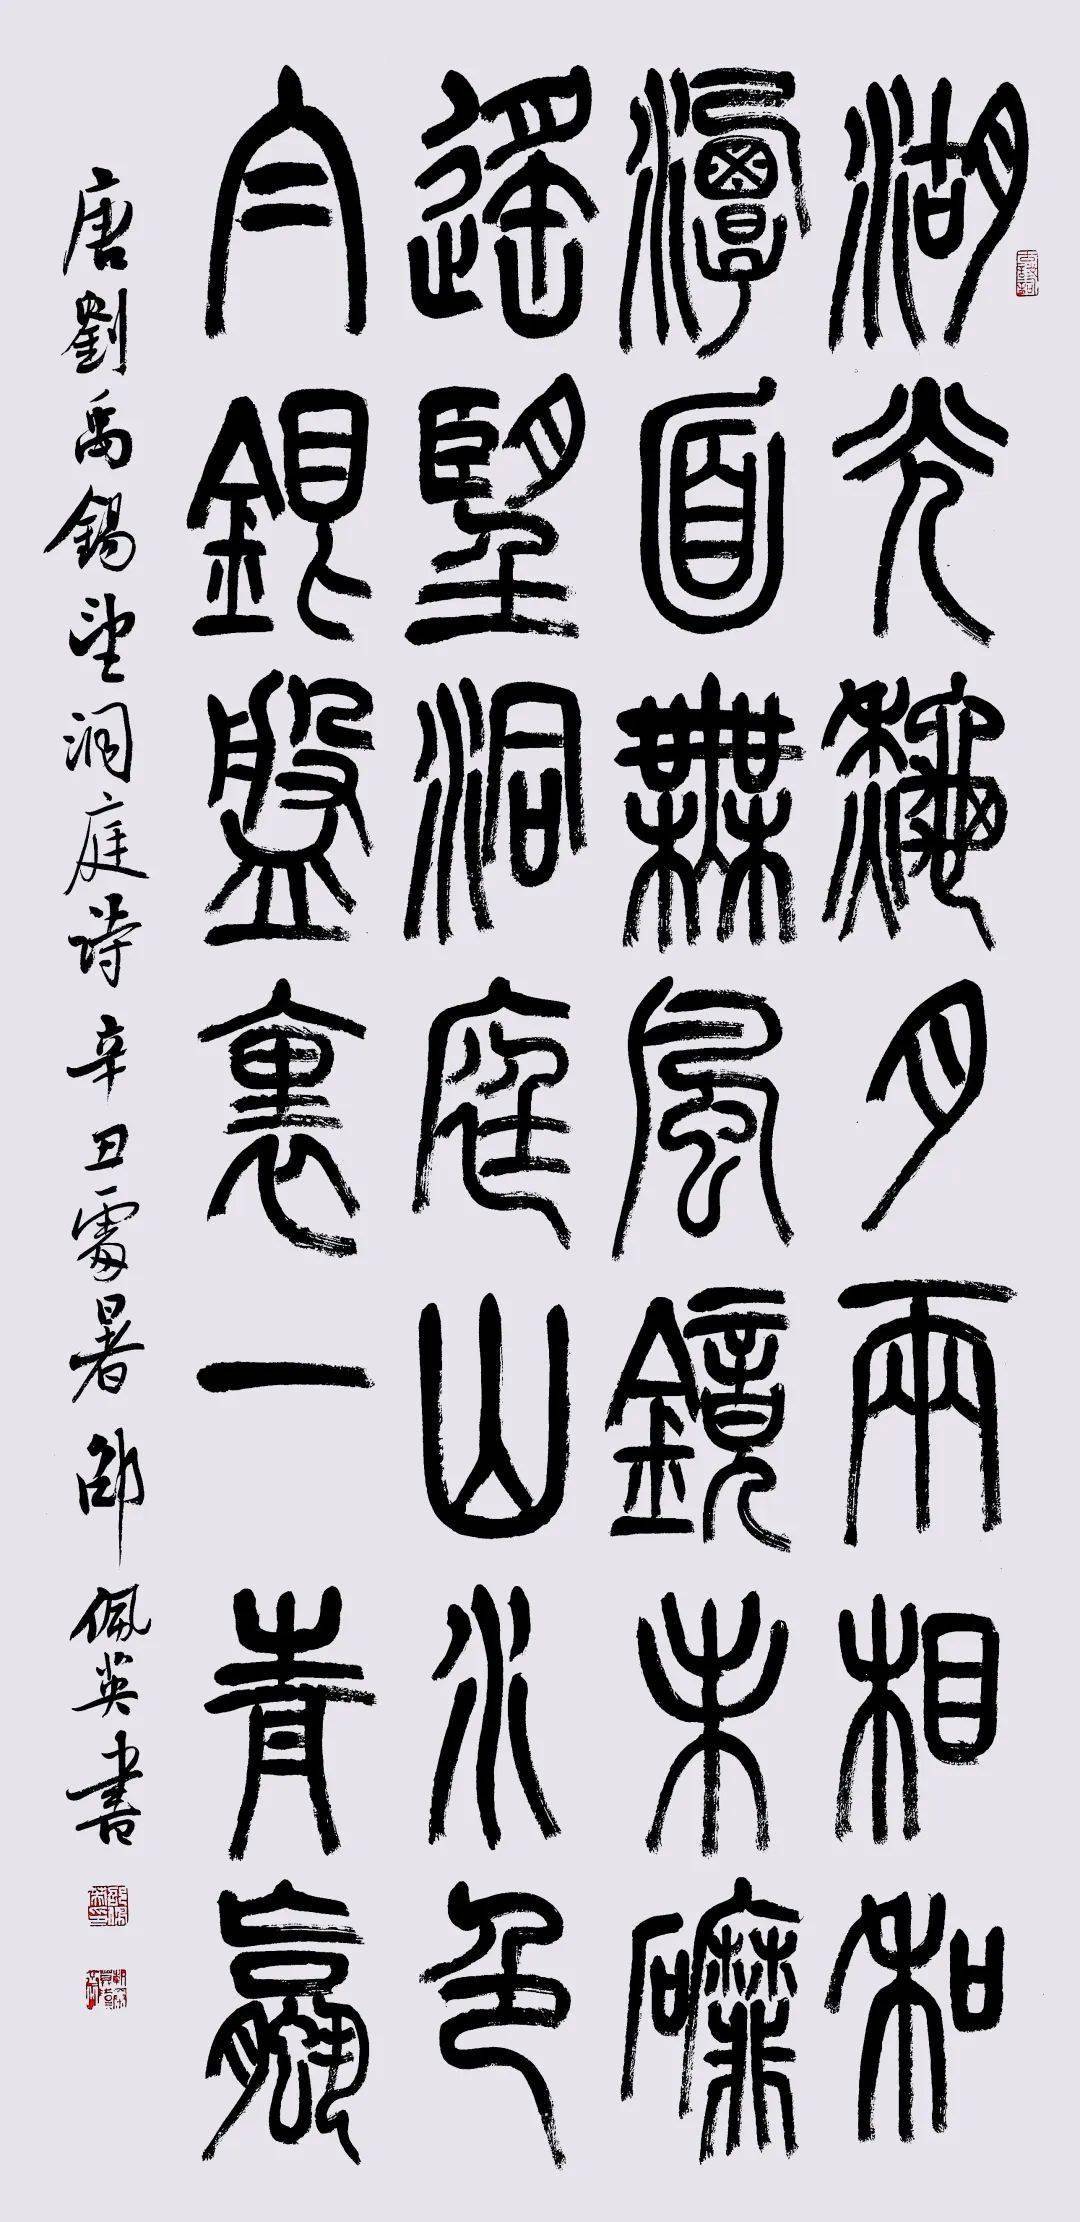 湖光龝月兩相和
潭面無風鏡未䃺
遥望洞庭山水色
白銀盤裏一青蠃
唐劉禹錫望洞庭詩辛丑處暑邵佩英書